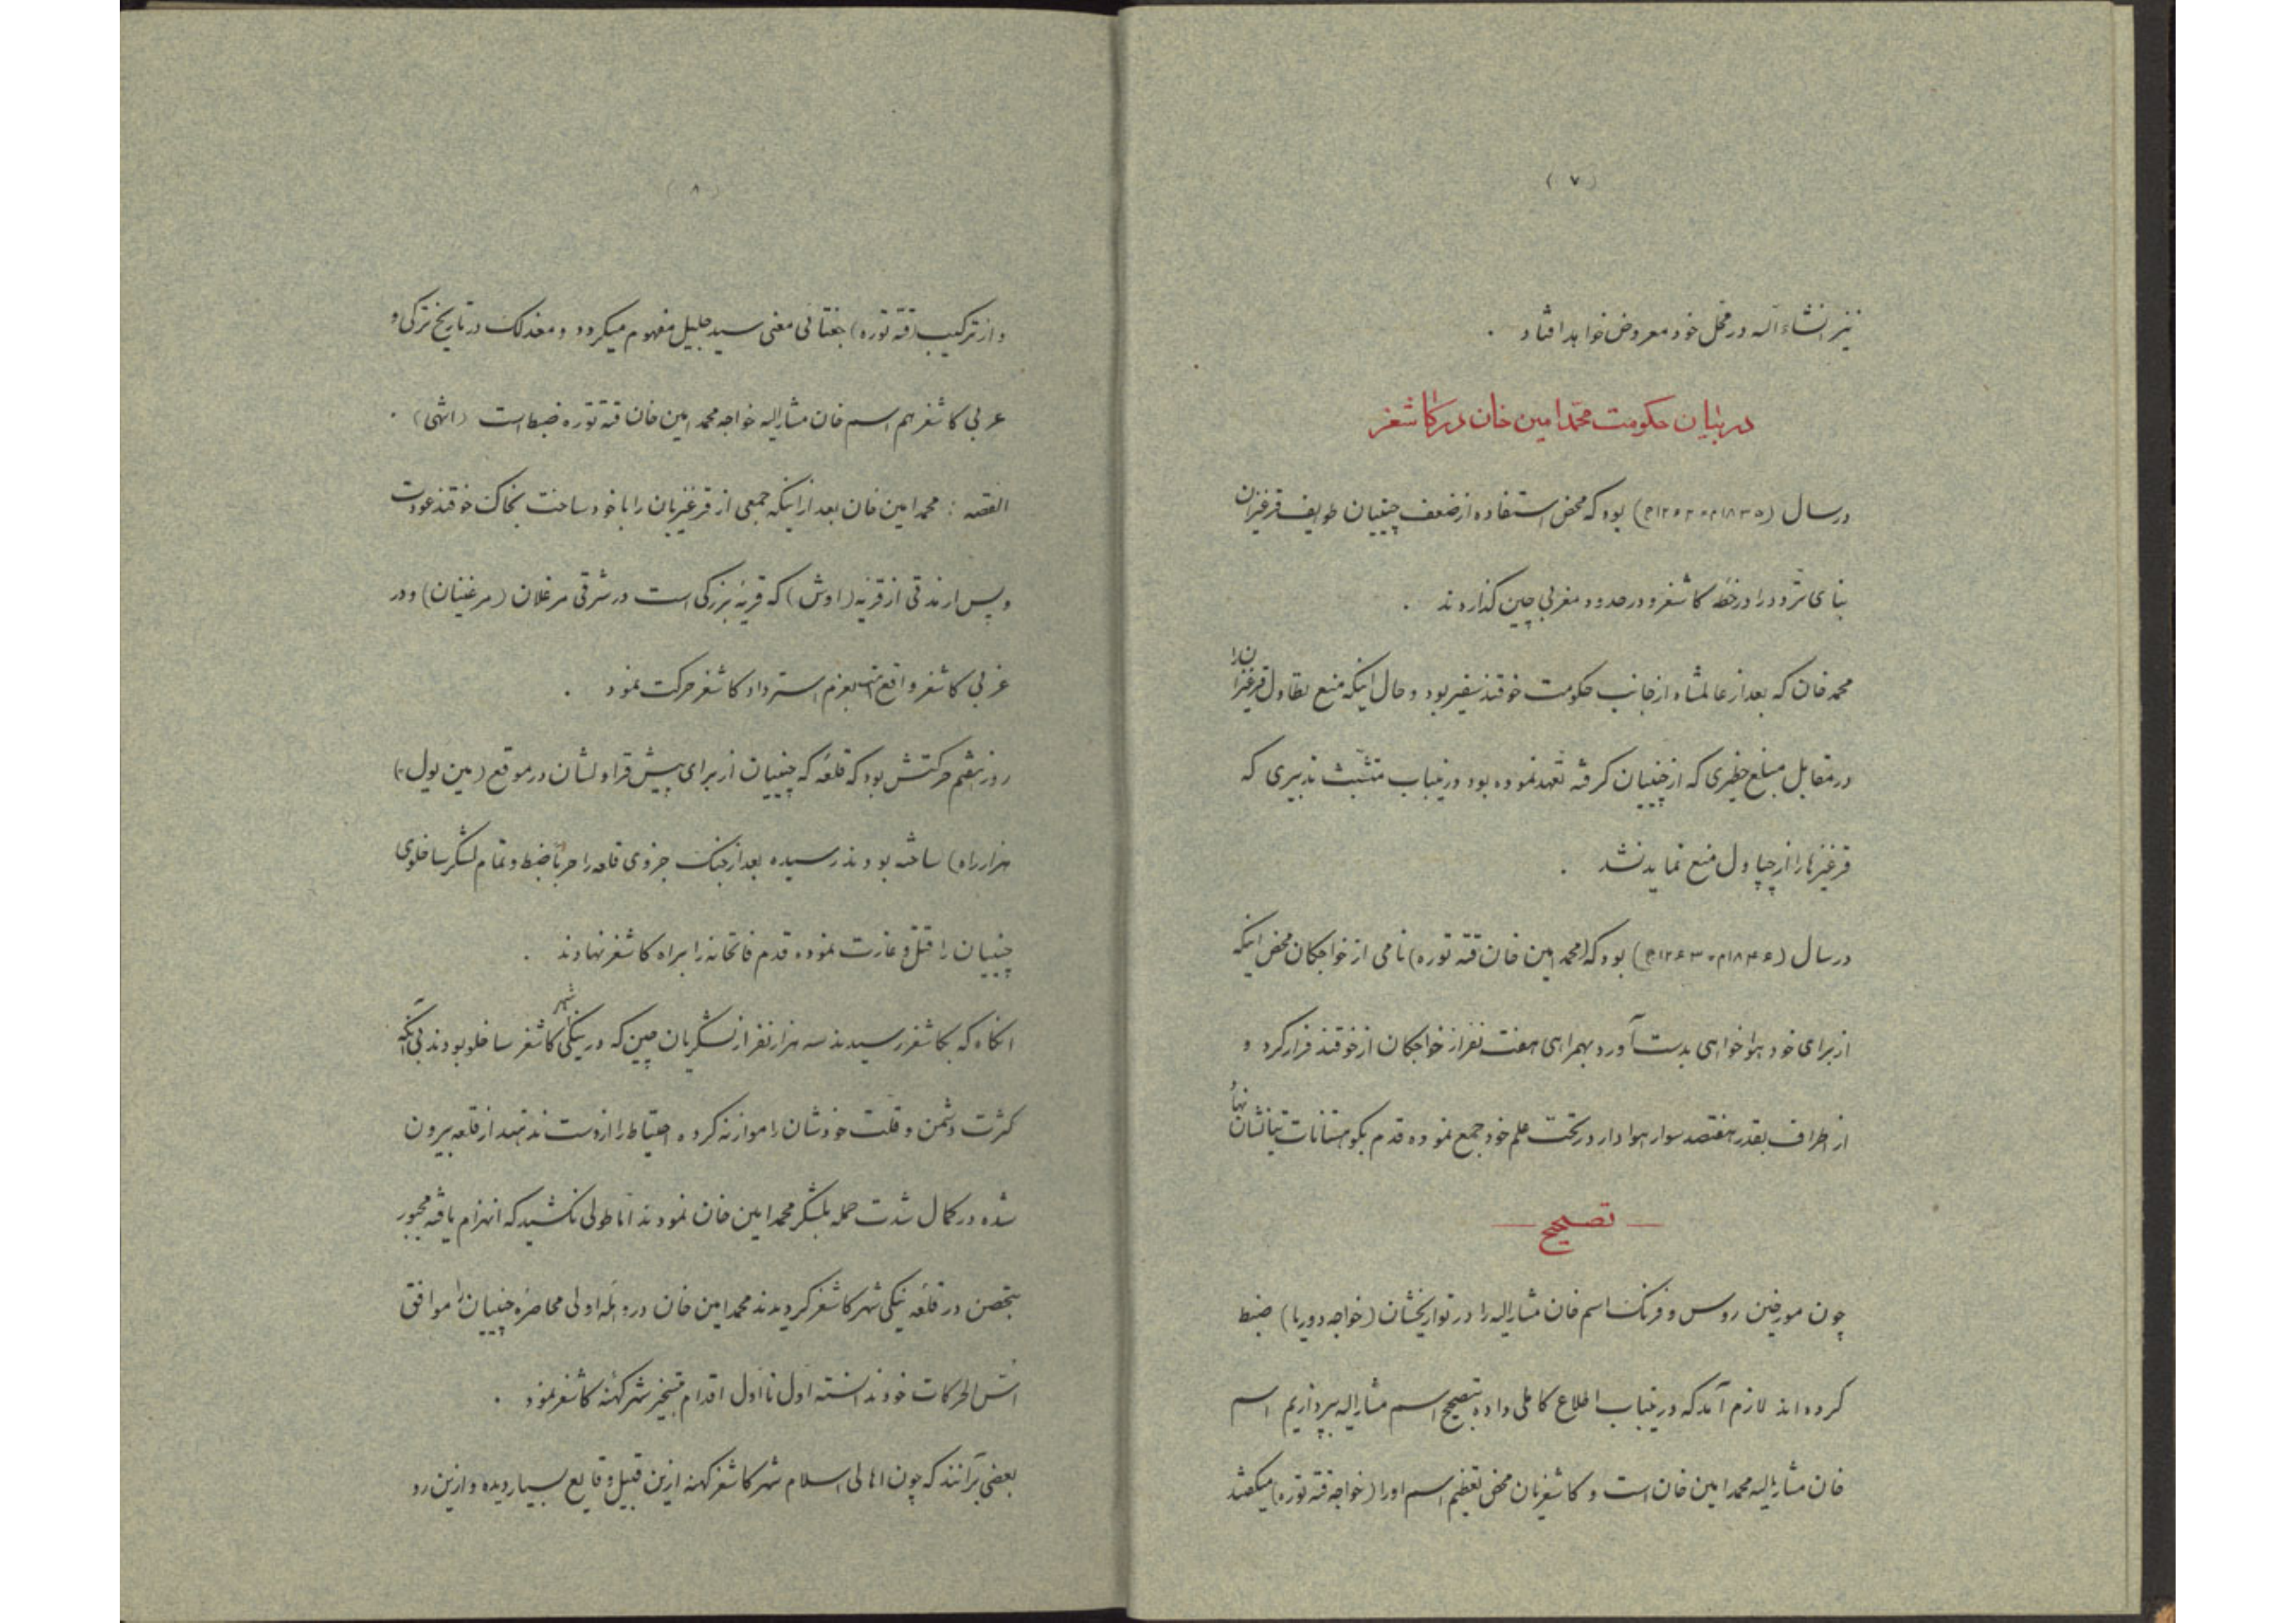 (۷)
نیز انشاءالله در محل خود معروض خواهد افتاد .
در بیان حکومت محمد امین خان در کاشغر
در سال (۱۸۳۵م - ۱۲۶۲ه) بود که محض استفاده از ضعف چینیان طوایف قرغیزان
بنای تردد را در خطه کاشغر و در حدود مغربی چین گذاردند .
محمد خان که بعد از عالمشاه از جانب حکومت خوقند سفیر بود و حال اینکه منع تطاول قرغیزان را
در مقابل مبلغ خطیری که از چینیان گرفته تعهد نموده بود درینباب متشبث تدبیری که
قرغیزها را از چپاول منع نماید نشد .
در سال (۱۸۴۶م - ۱۲۶۳ه) بود که (محمد امین خان قته توره) نامی از خواجکان محض اینکه
از برای خود هواخواهی بدست آورد بهمراهی هفت نفر از خواجکان از خوقند فرار کرد و
از اطراف بقدر هفتصد سوار هوادار در تحت علم خود جمع نموده قدم بکوهستانات تیانشان نهاد
— تصحیح —
چون مورخین روس و فرنک اسم خان مشارالیه را در تواریخشان (خواجه دوریا) ضبط
کرده‌اند لازم آمد که درینباب اطلاع کاملی داده بتصحیح اسم مشارالیه بپردازیم اسم
خان مشارالیه محمد امین خان است و کاشغریان محض تعظیم اسم او را (خواجه قته توره) میکفتند
(۸)
و از ترکیب (قته توره) جغتائی معنی سید جلیل مفهوم میکردد و معذلک در تاریخ ترکی و
عربی کاشغر هم اسم خان مشارالیه خواجه محمد امین خان قته توره ضبط است (انتهی) .
القصه : محمد امین خان بعد از اینکه جمعی از قرغیزیان را با خود ساخت بخاک خوقند عودت
و پس از مدتی از قریه (اوش) که قریه بزرکی است در شرقی مرغلان (مرغینان) و در
غربی کاشغر واقع است بعزم استرداد کاشغر حرکت نمود .
روز هشتم حرکتش بود که قلعه که چینیان از برای پیش قراولشان در موقع (مین یول)
هزار راه) ساخته بودند رسیده بعد از جنک جزوی قلعه را حرباً ضبط و تمام لشکر ساخلوی
چینیان را قتل و غارت نموده قدم فاتحانه را براه کاشغر نهادند .
انکاه که بکاشغر رسیدند سه هزار نفر از لشکریان چین که در ینکی شهر کاشغر ساخلو بودند بی آنکه
کثرت دشمن و قلت خودشان را موازنه کرده احتیاط را از دست ندهند از قلعه بیرون
شده در کمال شدت حمله بلشکر محمد امین خان نمودند اما طولی نکشید که انهزام یافته مجبور
بتحصن در قلعه ینکی شهر کاشغر کردیدند محمد امین خان در وهله اولی محاصره چینیان را موافق
اسس الحرکات خود ندانسته اول نا اول اقدام بتسخیر شهر کهنه کاشغر نمود .
بعضی برآنند که چون اهالی اسلام شهر کاشغر کهنه ازین قبیل وقایع بسیار دیده و ازین رو